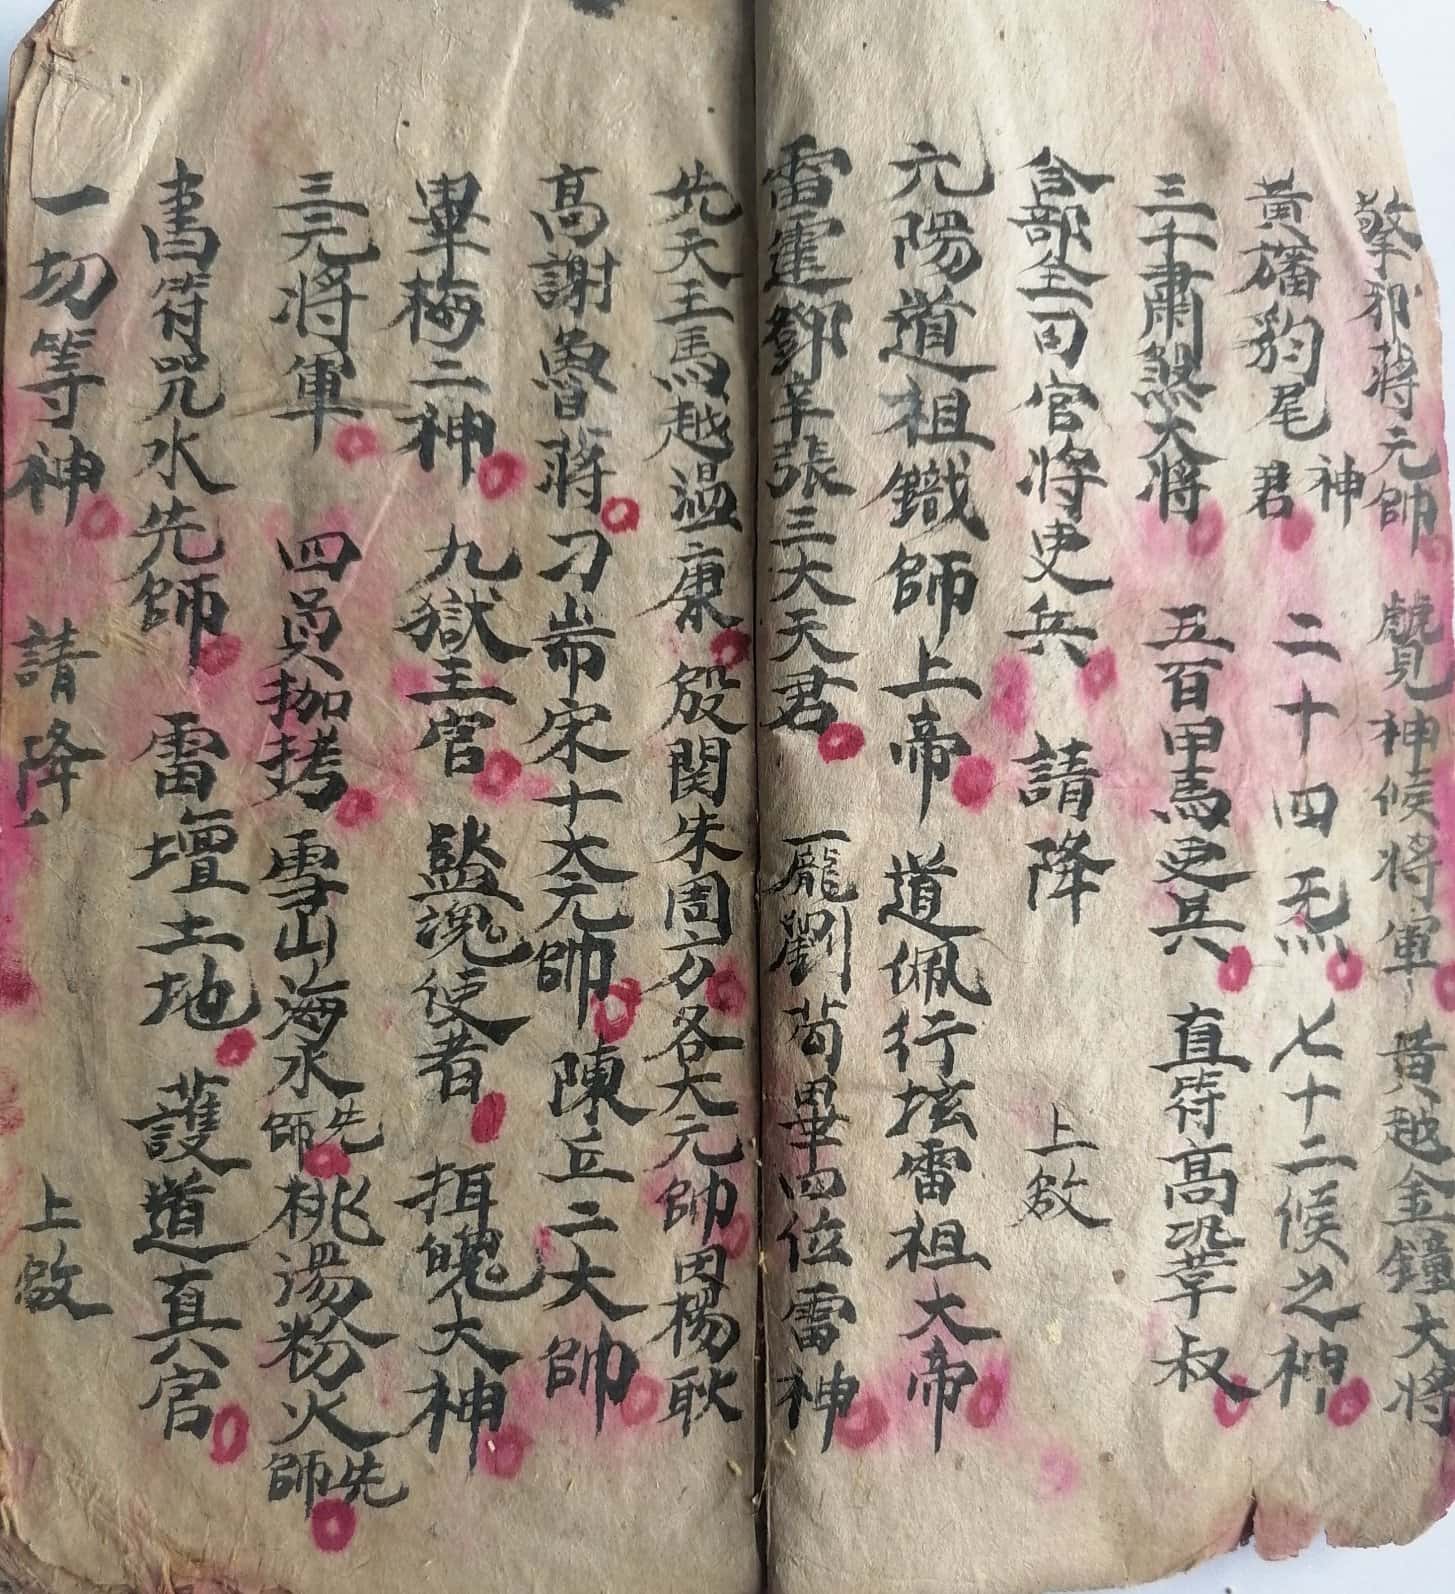 擎邪蔣元帥 神候將軍 黃越金鐘大將
黃旛豹尾神君 二十四炁 七十二候之神
三千肅煞大將 五百甲馬吏兵 直符高 叔
合部全司官將吏兵 請降 上啟
六陽道祖鐵師上帝 道佩行坛雷祖大帝
雷霆鄧辛張三大天君 龐劉茍畢四位雷神
先天王馬越溫康 殷関朱周方各大元帥田楊耿
高謝魯蔣刁 宋十大元帥 陳丘二大帥
畢梅二神 九獄主官 魂使者 魄大神
三元將軍 四員枷拷 雪山海水先師 桃湯粉火先師
書符咒水先師 雷壇土地 護道真官
一切等神 請降 上啟